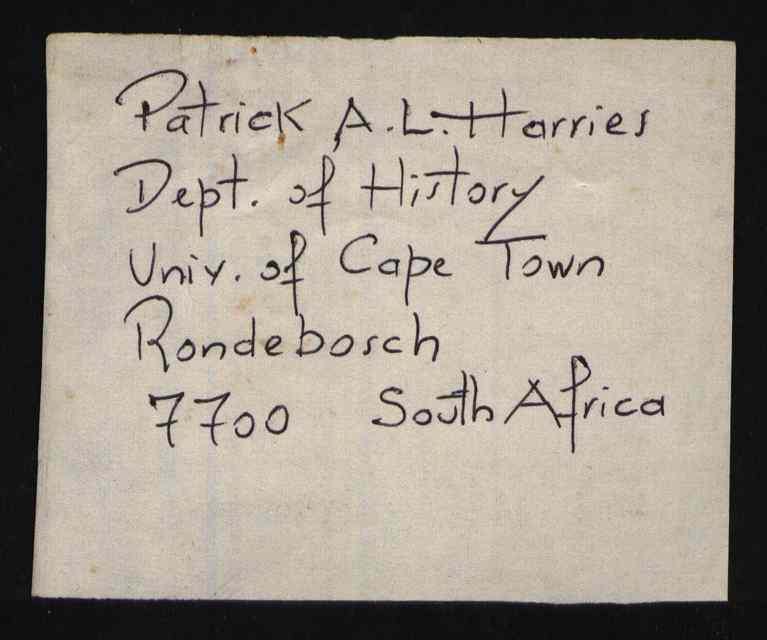 Patrick A.L. Harries
Dept. of History
Univ. of Cape Town
Rondebosch
7700 South Africa